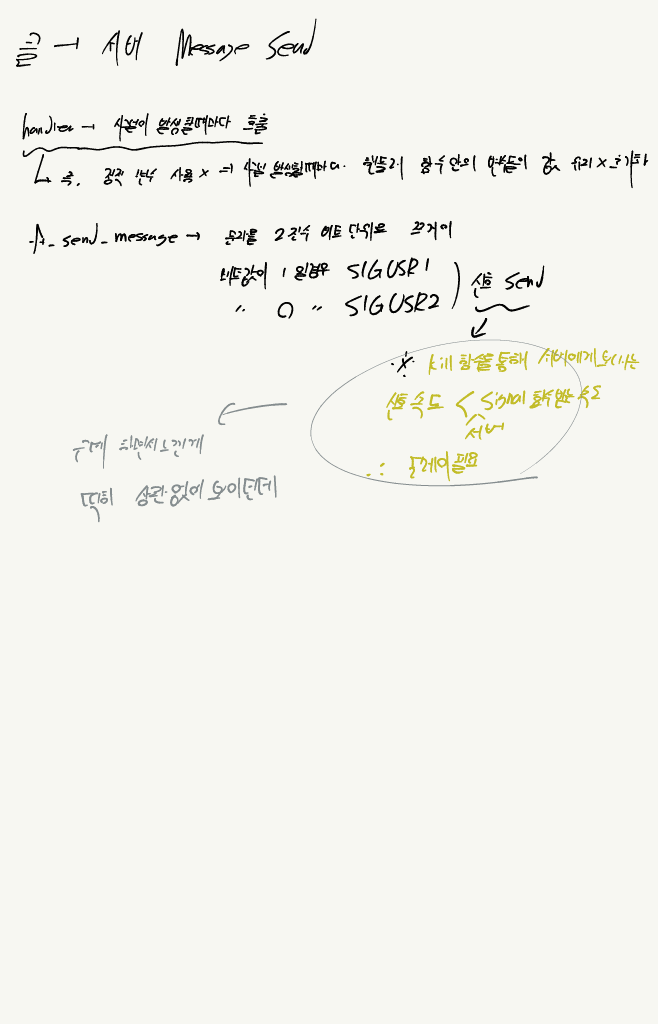 클 → 서버 Message Send
handler → 시그널이 발생할때마다 호출
즉, 정적 변수 사용 x → 시그널 발생할때마다. 핸들러 함수 안의 변수들의 값 유지 x 초기화
ft_send_message → 문자를 2진수 비트 단위로 쪼개어
비트값이 1 일경우 SIGUSR1
" 0 " SIGUSR2 ) 신호 Send
※ kill 함수를 통해 서버에게 보내는
신호 속도 < signal 함수 받는 속도
서버
∴ 딜레이 필요
구현 하면서 느낀게
딱히 상관 없어 보이던데